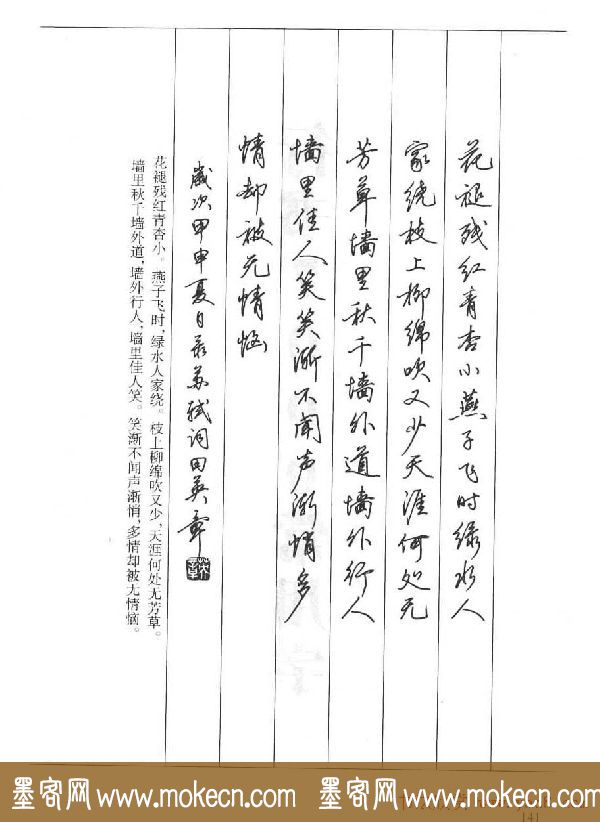 花褪残红青杏小燕子飞时绿水人
家绕枝上柳绵吹又少天涯何处无
芳草墙里秋千墙外道墙外行人
墙里佳人笑笑渐不闻声渐悄多
情却被无情恼
岁次甲申夏日录苏轼词田英章
花褪残红青杏小。燕子飞时,绿水人家绕。枝上柳绵吹又少,天涯何处无芳草。
墙里秋千墙外道,墙外行人,墙里佳人笑。笑渐不闻声渐悄,多情却被无情恼。
墨客网 www.mokecn.com 墨客网 www.mokecn.com
141